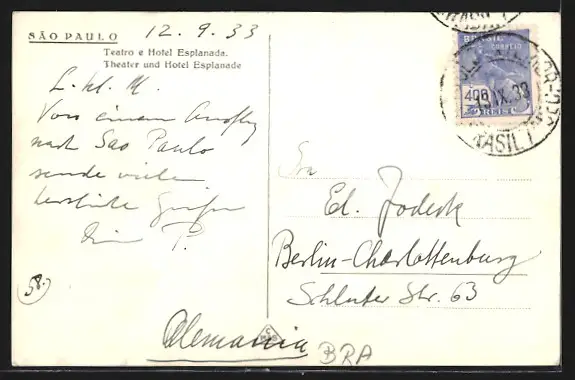 SÃO PAULO
12.9.33
Teatro e Hotel Esplanada.
Theater und Hotel Esplanade
L. kl. M.
Von einem Ausflug
nach Sao Paulo
sende viele
herzliche Grüße
Dein P.
58.)
BRASIL
BRASIL
CORREIO
400
REIS
13.IX.33
BRASIL
Ed. Jodesk
Berlin-Charlottenburg
Schluter Str. 63
Alemania
BRA